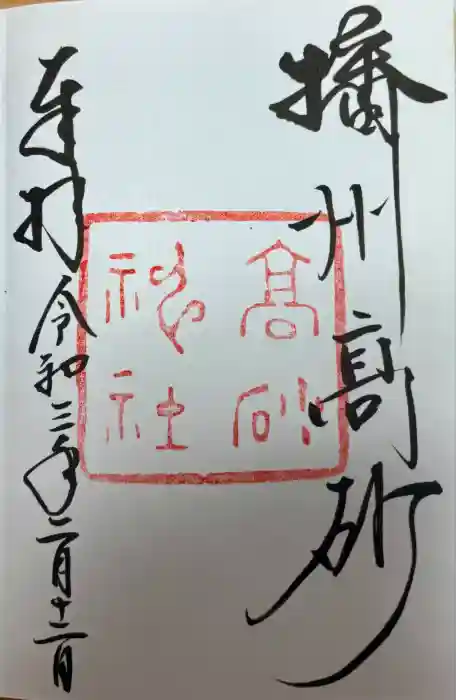 播州高砂
髙砂
神社
奉拝
令和三年二月十二日